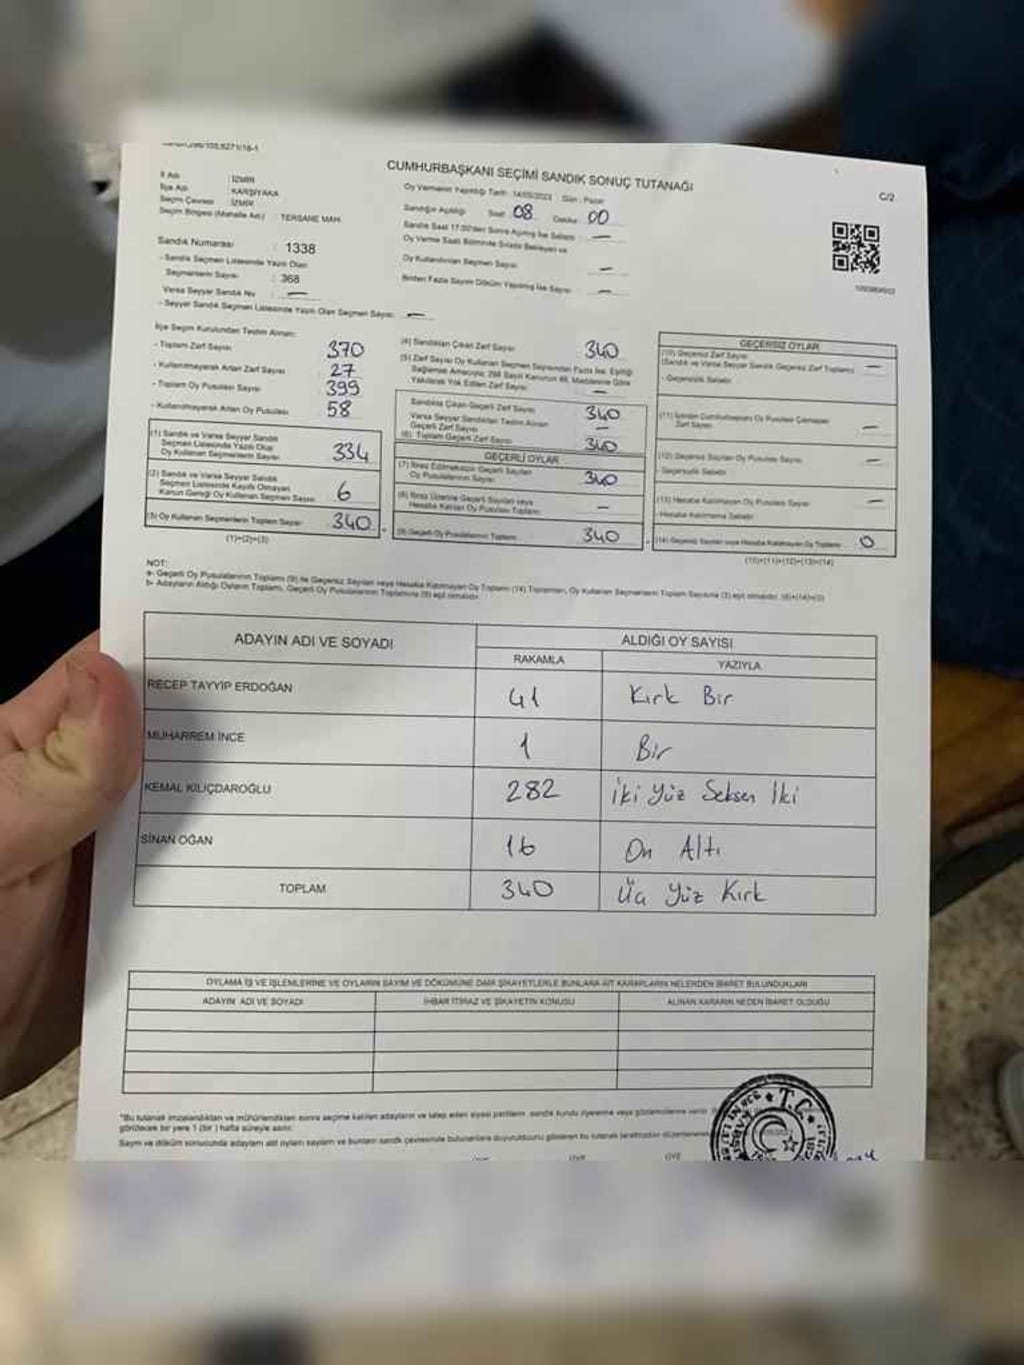 CUMHURBAŞKANI SEÇİMİ SANDIK SONUÇ TUTANAĞI
C/2
İl Adı : İZMİR
İlçe Adı : KARŞIYAKA
Seçim Çevresi : İZMİR
Seçim Bölgesi (Mahalle Adı) : TERSANE MAH.
Oy Vermenin Yapıldığı Tarih : 14/05/2023 Gün : Pazar
Sandığın Açıldığı Saat 08 Dakika 00
Sandık Saat 17.00'den Sonra Açılmış İse Sebebi : —
Oy Verme Saati Bitiminde Sırada Bekleyen ve
Oy Kullandırılan Seçmen Sayısı : —
Birden Fazla Sayım Döküm Yapılmış İse Sayısı : —
Sandık Numarası : 1338
- Sandık Seçmen Listesinde Yazılı Olan
Seçmenlerin Sayısı : 368
Varsa Seyyar Sandık No : —
- Seyyar Sandık Seçmen Listesinde Yazılı Olan Seçmen Sayısı : —
İlçe Seçim Kurulundan Teslim Alınan:
- Toplam Zarf Sayısı 370
- Kullanılmayarak Artan Zarf Sayısı 27
- Toplam Oy Pusulası Sayısı 399
- Kullanılmayarak Artan Oy Pusulası 58
(1) Sandık ve Varsa Seyyar Sandık
Seçmen Listesinde Yazılı Olup
Oy Kullanan Seçmenlerin Sayısı 334
(2) Sandık ve Varsa Seyyar Sandık
Seçmen Listesinde Kayıtlı Olmayan
Kanun Gereği Oy Kullanan Seçmen Sayısı 6
(3) Oy Kullanan Seçmenlerin Toplam Sayısı 340
(1)+(2)=(3)
(4) Sandıktan Çıkan Zarf Sayısı 340
(5) Zarf Sayısı Oy Kullanan Seçmen Sayısından Fazla İse, Eşitliği
Sağlamak Amacıyla; 298 Sayılı Kanunun 98. Maddesine Göre
Yakılarak Yok Edilen Zarf Sayısı —
Sandıkta Çıkan Geçerli Zarf Sayısı 340
Varsa Seyyar Sandıktan Teslim Alınan
Geçerli Zarf Sayısı —
(6) Toplam Geçerli Zarf Sayısı 340
GEÇERLİ OYLAR
(7) İtiraz Edilmeksizin Geçerli Sayılan
Oy Pusulalarının Sayısı 340
(8) İtiraz Üzerine Geçerli Sayılan veya
Hesaba Katılan Oy Pusulası Toplamı —
(9) Geçerli Oy Pusulalarının Toplamı 340
GEÇERSİZ OYLAR
(10) Geçersiz Zarf Sayısı
(Sandık ve Varsa Seyyar Sandık Geçersiz Zarf Toplamı) —
- Geçersizlik Sebebi:
(11) İçinden Cumhurbaşkanı Oy Pusulası Çıkmayan
Zarf Sayısı —
(12) Geçersiz Sayılan Oy Pusulası Sayısı —
- Geçersizlik Sebebi:
(13) Hesaba Katılmayan Oy Pusulası Sayısı —
- Hesaba Katılmama Sebebi:
(14) Geçersiz Sayılan veya Hesaba Katılmayan Oy Toplamı 0
(10)+(11)+(12)+(13)=(14)
NOT:
a- Geçerli Oy Pusulalarının Toplamı (9) ile Geçersiz Sayılan veya Hesaba Katılmayan Oy Toplamı (14) Toplamları, Oy Kullanan Seçmenlerin Toplam Sayısına (3) eşit olmalıdır. (9)+(14)=(3)
b- Adayların Aldığı Oyların Toplamı, Geçerli Oy Pusulalarının Toplamına (9) eşit olmalıdır.
ADAYIN ADI VE SOYADI ALDIĞI OY SAYISI
RAKAMLA YAZIYLA
RECEP TAYYİP ERDOĞAN 41 Kırk Bir
MUHARREM İNCE 1 Bir
KEMAL KILIÇDAROĞLU 282 İki Yüz Seksen İki
SİNAN OĞAN 16 On Altı
TOPLAM 340 Üç Yüz Kırk
OYLAMA İŞ VE İŞLEMLERİNE VE OYLARIN SAYIM VE DÖKÜMÜNE DAİR ŞİKAYETLERLE BUNLARA AİT KARARLARIN NELERDEN İBARET BULUNDUKLARI
ADAYIN ADI VE SOYADI İHBAR İTİRAZ VE ŞİKAYETİN KONUSU ALINAN KARARIN NEDEN İBARET OLDUĞU
*Bu tutanak imzalandıktan ve mühürlendikten sonra seçime katılan adayların ve talep eden siyasi partilerin sandık kurulu üyelerine veya gözlemcilerine verilir
görülecek bir yere 1 (bir) hafta süreyle asılır.
Sayım ve döküm sonucunda adayların aldığı oyların sayılarını ve bunların sandık çevresinde bulunanlara duyurulduğunu gösteren bu tutanak tarafımızdan düzenlenerek
ÜYE ÜYE ÜYE
T.C.